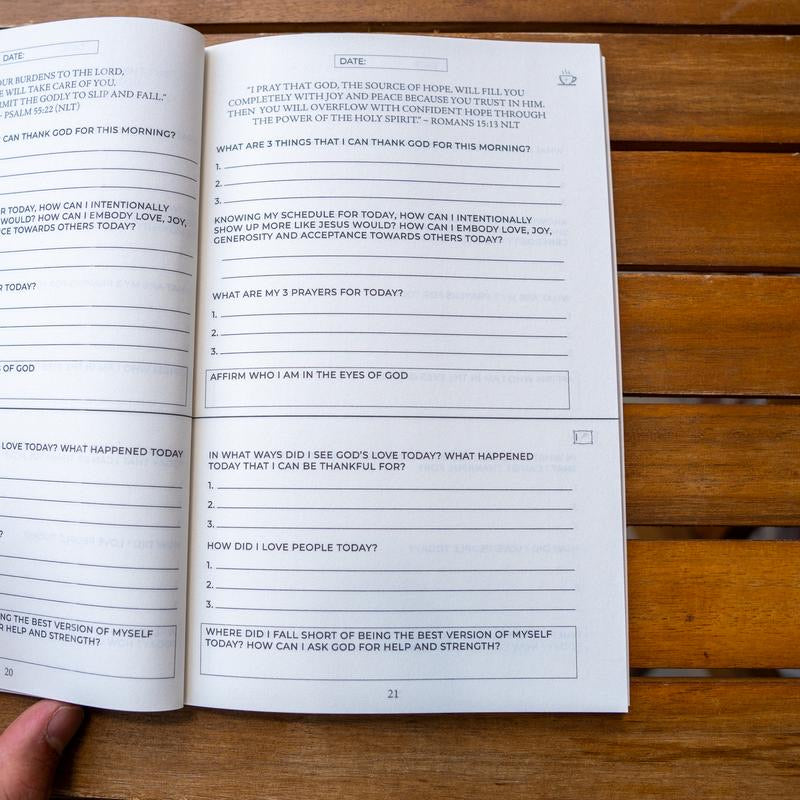 DATE:
OUR BURDENS TO THE LORD,
E WILL TAKE CARE OF YOU.
RMIT THE GODLY TO SLIP AND FALL."
– PSALM 55:22 (NLT)
CAN THANK GOD FOR THIS MORNING?
R TODAY, HOW CAN I INTENTIONALLY
WOULD? HOW CAN I EMBODY LOVE, JOY,
CE TOWARDS OTHERS TODAY?
R TODAY?
S OF GOD
LOVE TODAY? WHAT HAPPENED TODAY
?
NG THE BEST VERSION OF MYSELF
R HELP AND STRENGTH?
20
DATE:
"I PRAY THAT GOD, THE SOURCE OF HOPE, WILL FILL YOU
COMPLETELY WITH JOY AND PEACE BECAUSE YOU TRUST IN HIM.
THEN YOU WILL OVERFLOW WITH CONFIDENT HOPE THROUGH
THE POWER OF THE HOLY SPIRIT." – ROMANS 15:13 NLT
WHAT ARE 3 THINGS THAT I CAN THANK GOD FOR THIS MORNING?
1.
2.
3.
KNOWING MY SCHEDULE FOR TODAY, HOW CAN I INTENTIONALLY
SHOW UP MORE LIKE JESUS WOULD? HOW CAN I EMBODY LOVE, JOY,
GENEROSITY AND ACCEPTANCE TOWARDS OTHERS TODAY?
WHAT ARE MY 3 PRAYERS FOR TODAY?
1.
2.
3.
AFFIRM WHO I AM IN THE EYES OF GOD
IN WHAT WAYS DID I SEE GOD'S LOVE TODAY? WHAT HAPPENED
TODAY THAT I CAN BE THANKFUL FOR?
1.
2.
3.
HOW DID I LOVE PEOPLE TODAY?
1.
2.
3.
WHERE DID I FALL SHORT OF BEING THE BEST VERSION OF MYSELF
TODAY? HOW CAN I ASK GOD FOR HELP AND STRENGTH?
21